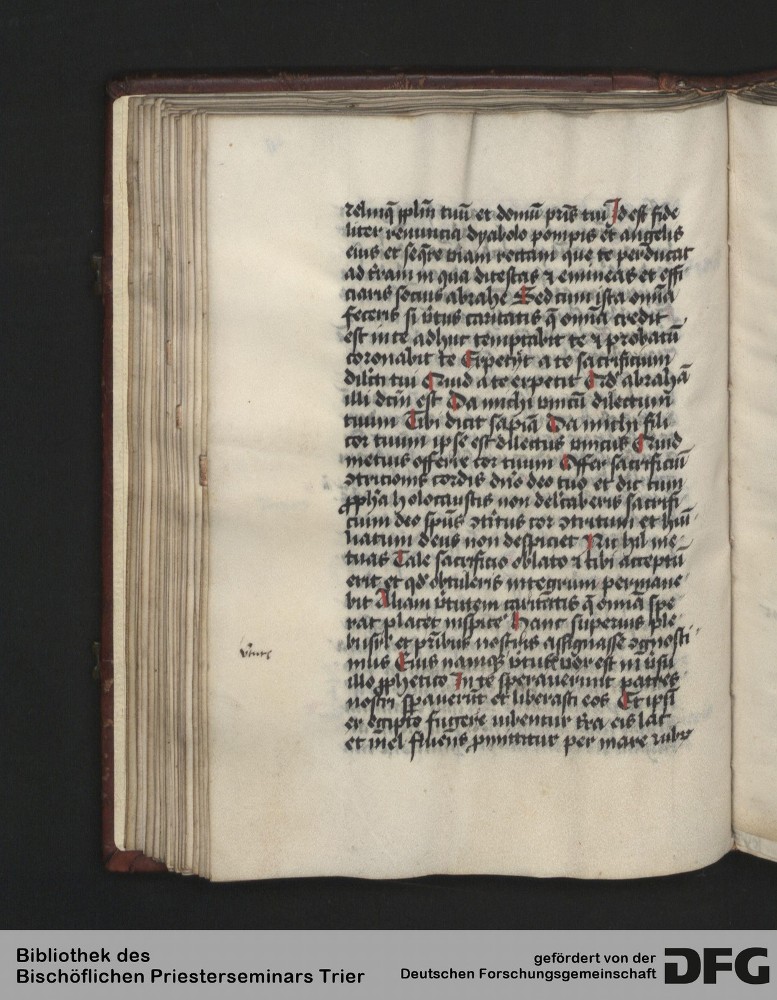 relinq̄ pplm̄ tuū et domū pris̄ tui Id est fide
liter renuncia dyabolo pompis et angelis
eius et seq̄re viam rectam que te perducat
ad t̄ram in qua ditestas ⁊ emineas et effi
ciaris socius abrahe Sed cum ista om̄ia
feceris si v̄tus caritatis q̄ om̄ia credit
est in te adhuc temptabit te ⁊ probatū
coronabit te Expetijt a te sacrificium
dilc̄ti tui Quid a te expetit Qd̄ abrahā
illi dc̄m est Da michi vnicū dilectum
tuum Tibi dicit sapiā Da michi fili
cor tuum ipse est dilectus vnicus Quid
metuis offerre cor tuum Offer sacrificiū
ↄtricionis cordis dn̄o deo tuo et dic cum
ꝓph̄a holocaustis non delc̄aberis sacrifi
cium deo spūs ↄtⁱtus cor ↄtritum et hūi
liatum deus non despiciet Nichil me
tuas Tale sacrificio oblato ⁊ tibi acceptū
erit et qd̄ obtuleris integrum permane
bit Aliam v̄tutem caritatis q̄ om̄ia spe
rat placet inspice Hanc superius
et pr̄ibus nostris assignasse ↄgnosci
mus Eius namq̄ v̄tutis vox est in v̄su
illo ꝓphetico In te sperauerunt patres
nostri spauerūt et liberasti eos Et ipsi
ex egipto fugere iubentur t̄ra eis lac
et mel fluens ꝓmittitur per mare rubrū
v̄tutis
Bibliothek des
Bischöflichen Priesterseminars Trier
gefördert von der
Deutschen Forschungsgemeinschaft
DFG